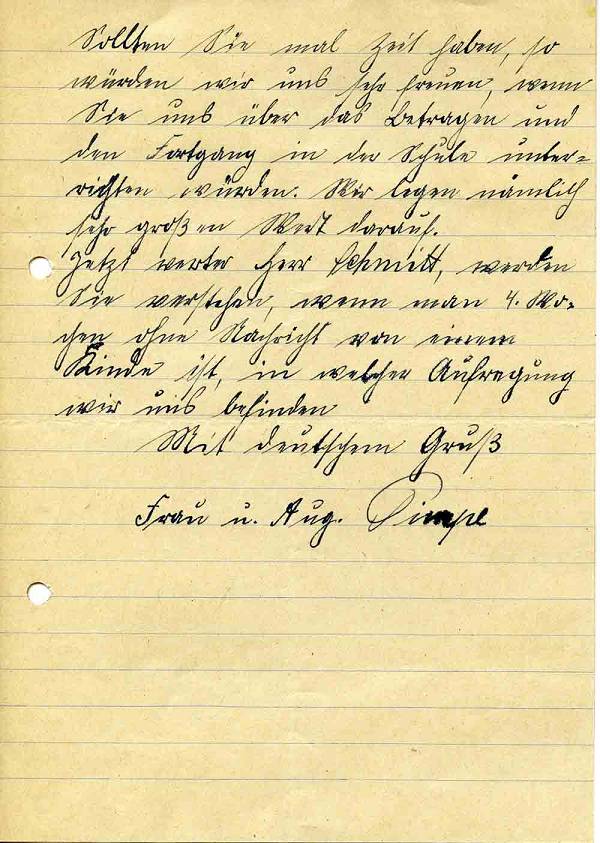 Sollten Sie mal Zeit haben, so
würden wir uns sehr freuen, wenn
Sie uns über das Betragen und
den Fortgang in der Schule unter-
richten würden. Wir legen nämlich
sehr großen Wert darauf.
Jetzt werter Herr Schmitt, werden
Sie verstehen, wenn man 4. Wo-
chen ohne Nachricht von einem
Kinde ist, in welcher Aufregung
wir uns befinden
Mit deutschem Gruß
Frau u. Aug. Dimpl